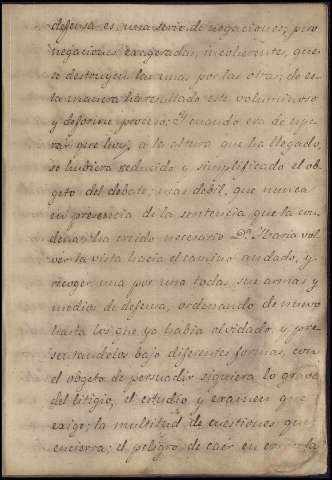 defensa es, una serie de negaciones; pero
negaciones exageradas, incoherentes, que
se destruyen las unas por las otras; de es-
ta manera ha resultado este voluminoso
y disforme proceso. Y cuando era de espe-
rar que hoy, a la altura que ha llegado,
se hubiera reducido y simplificado el ob-
geto del debate; mas debil, que nunca
en presencia de la sentencia que la con-
dena, ha creido necesario Dª. Maria vol-
ver la vista hacia el camino andado, y
recoger una por una todas sus armas y
medios de defensa, ordenando de nuevo
hasta los que ya habia olvidado, y pre-
sentandolos bajo diferentes formas, con
el obgeto de persuadir siquiera lo grave
del litigio, el estudio y examen que
exige; la multitud de cuestiones que
encierra; el peligro de caer en error la